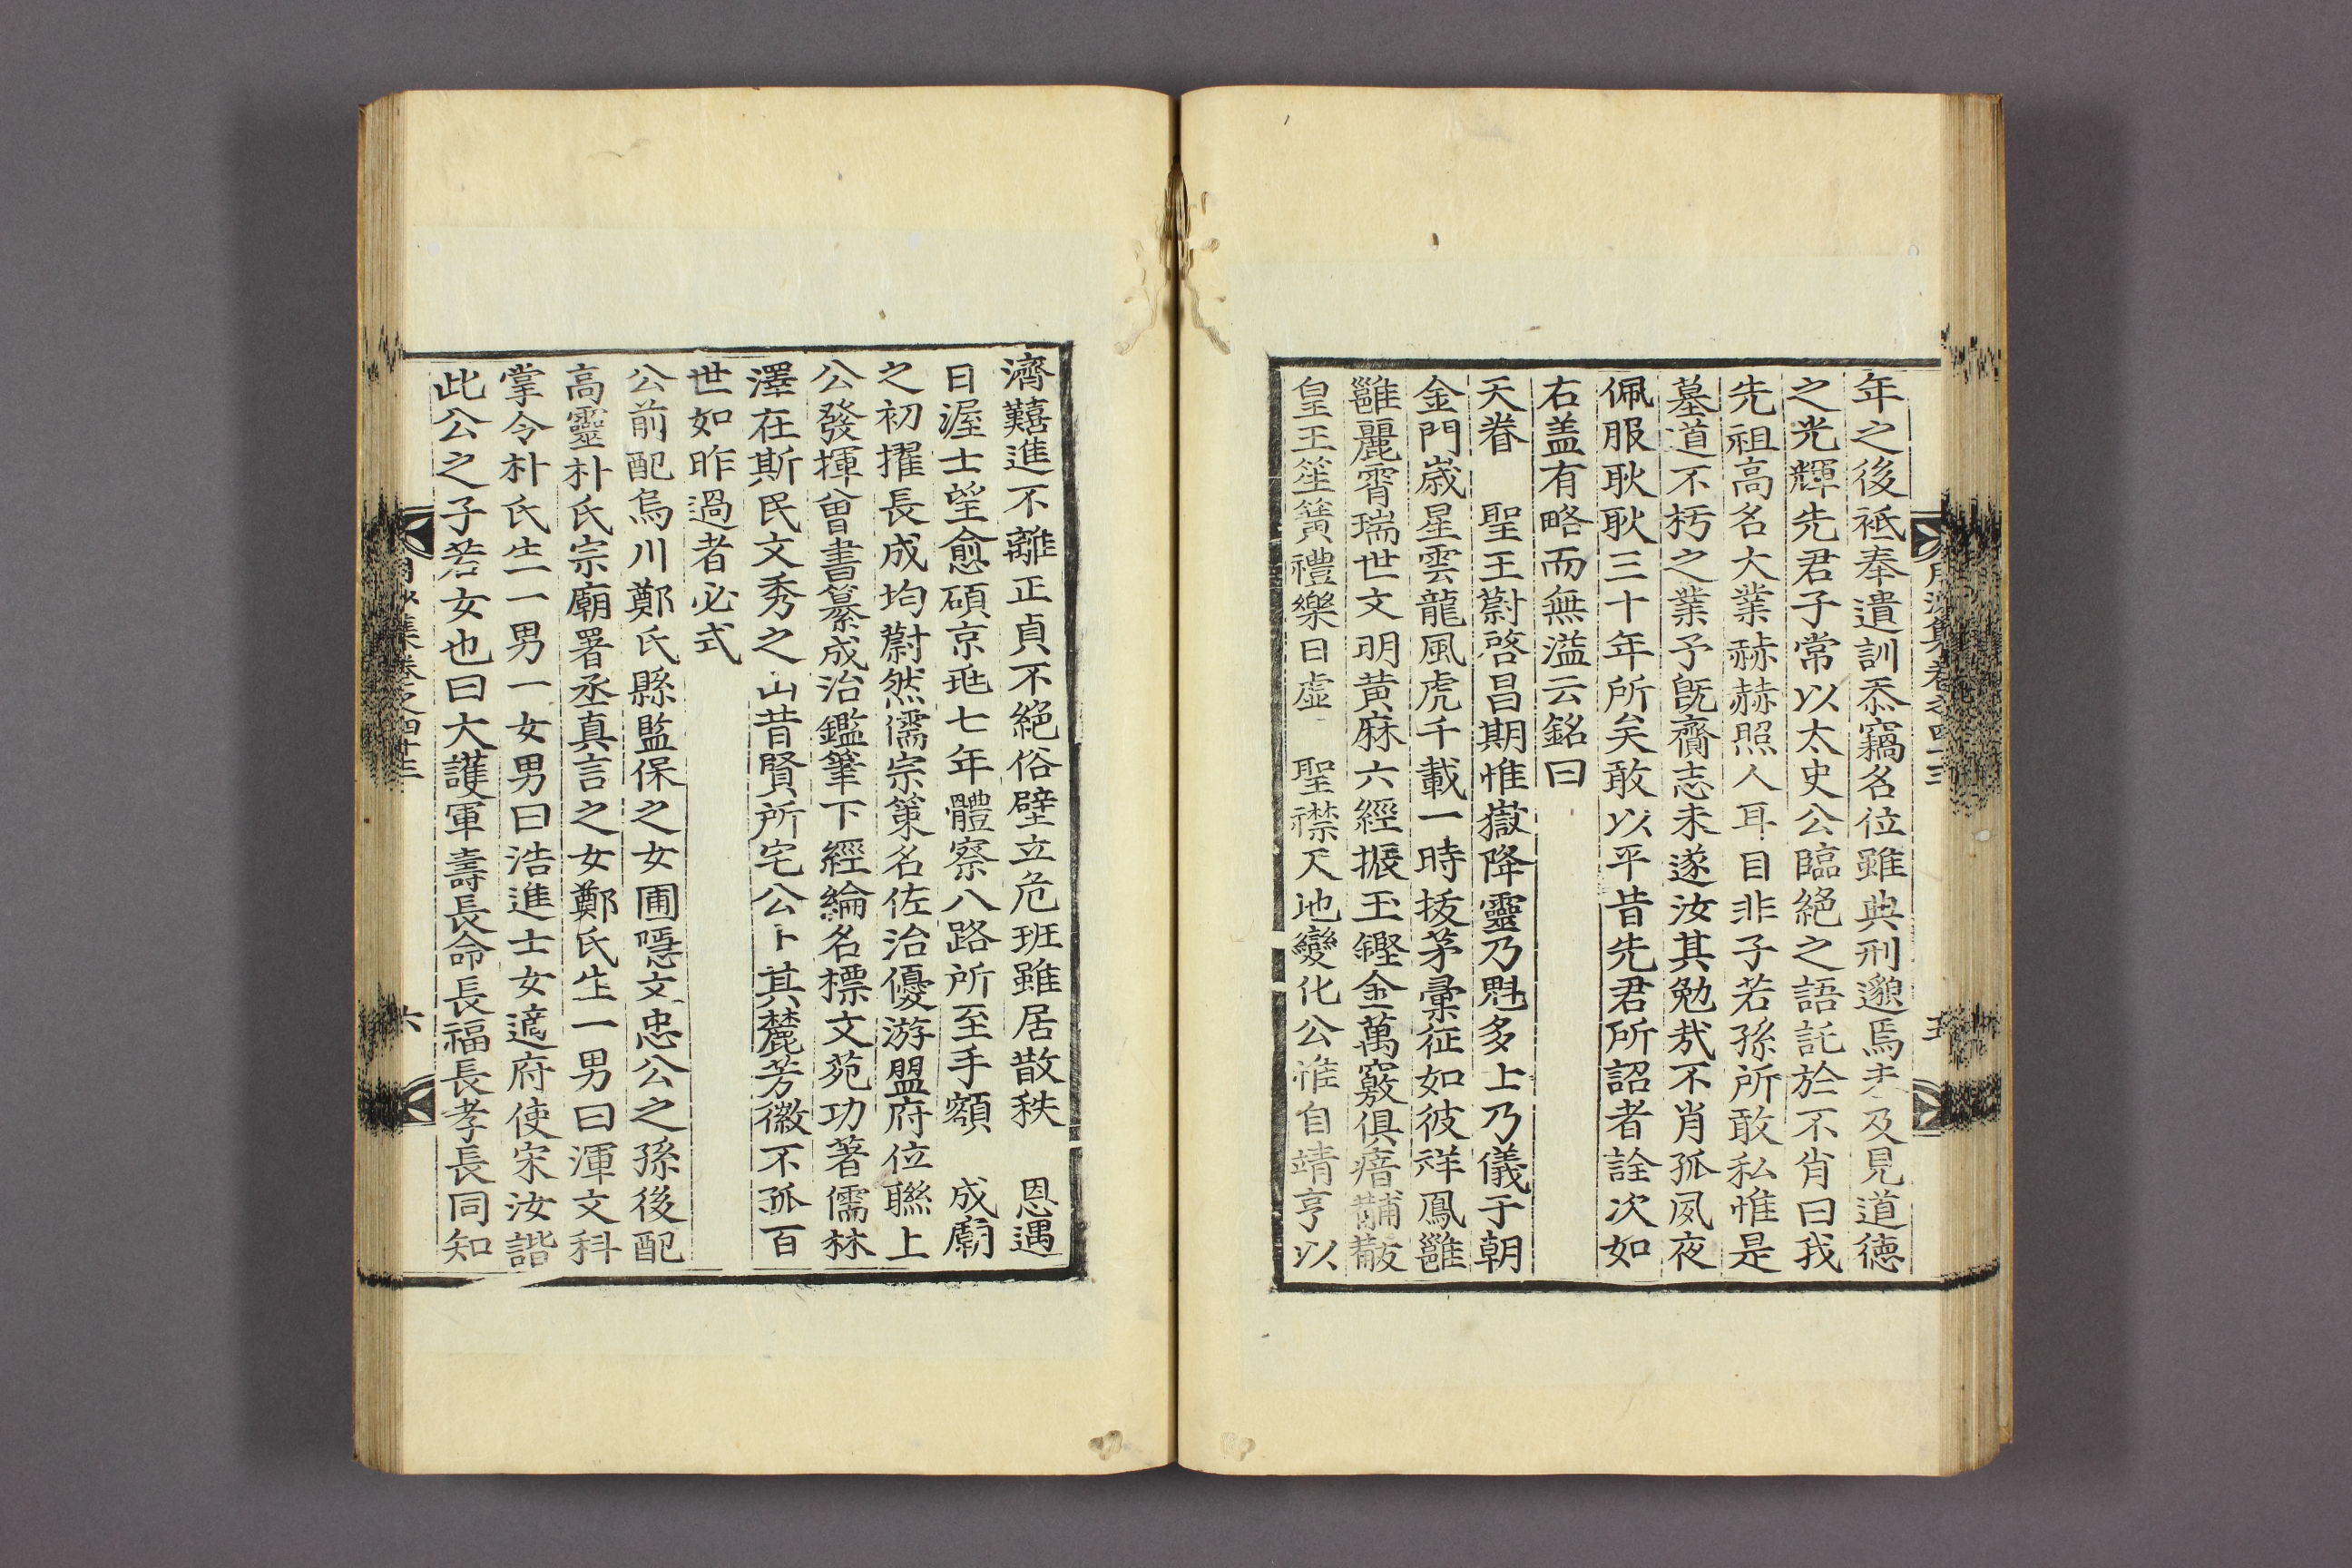 年之後祗奉遺訓忝竊名位雖典刑邈焉未及見道德
之光輝先君子常以太史公臨絕之語託於不肖曰我
先祖高名大業赫赫照人耳目非子若孫所敢私惟是
墓道不朽之業予旣齎志未遂汝其勉㢤不肖孤夙夜
佩服耿耿三十年所矣敢以平昔先君所詔者詮次如
右盖有略而無溢云銘曰
天眷 聖王蔚啓昌期惟嶽降靈乃魁多士乃儀于朝
金門歲星雲龍風虎千載一時拔茅彙征如彼祥鳳雝
雝麗霄瑞世文明黄麻六經振玉鏗金萬竅俱瘖黼黻
皇王笙簧禮樂曰虛 聖襟天地變化公惟自靖亨以
月沙集卷之四十三
五
濟囏進不離正貞不絕俗壁立危班雖居散秩 恩遇
日渥士望愈碩京兆七年體察八路所至手額 成廟
之初擢長成均蔚然儒宗策名佐治優游盟府位聯上
公發揮曾書纂成治鑑筆下經綸名標文苑功著儒林
澤在斯民文秀之山昔賢所宅公卜其麓芳徽不孤百
世如昨過者必式
公前配烏川鄭氏縣監保之女圃隱文忠公之孫後配
高靈朴氏宗廟署丞真言之女鄭氏生一男曰渾文科
掌令朴氏生一男一女男曰浩進士女適府使宋汝諧
此公之子若女也曰大護軍壽長命長福長孝長同知
月沙集卷之四十三
六